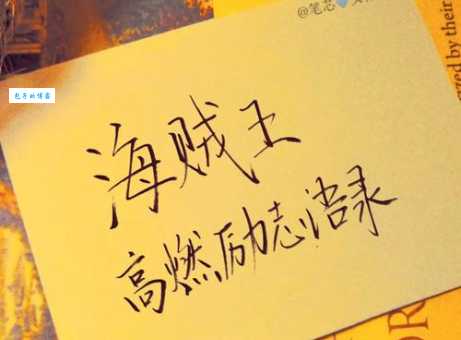 @笔芯
包子的博客
海贼王
高燃励志语录
zed by their
OR